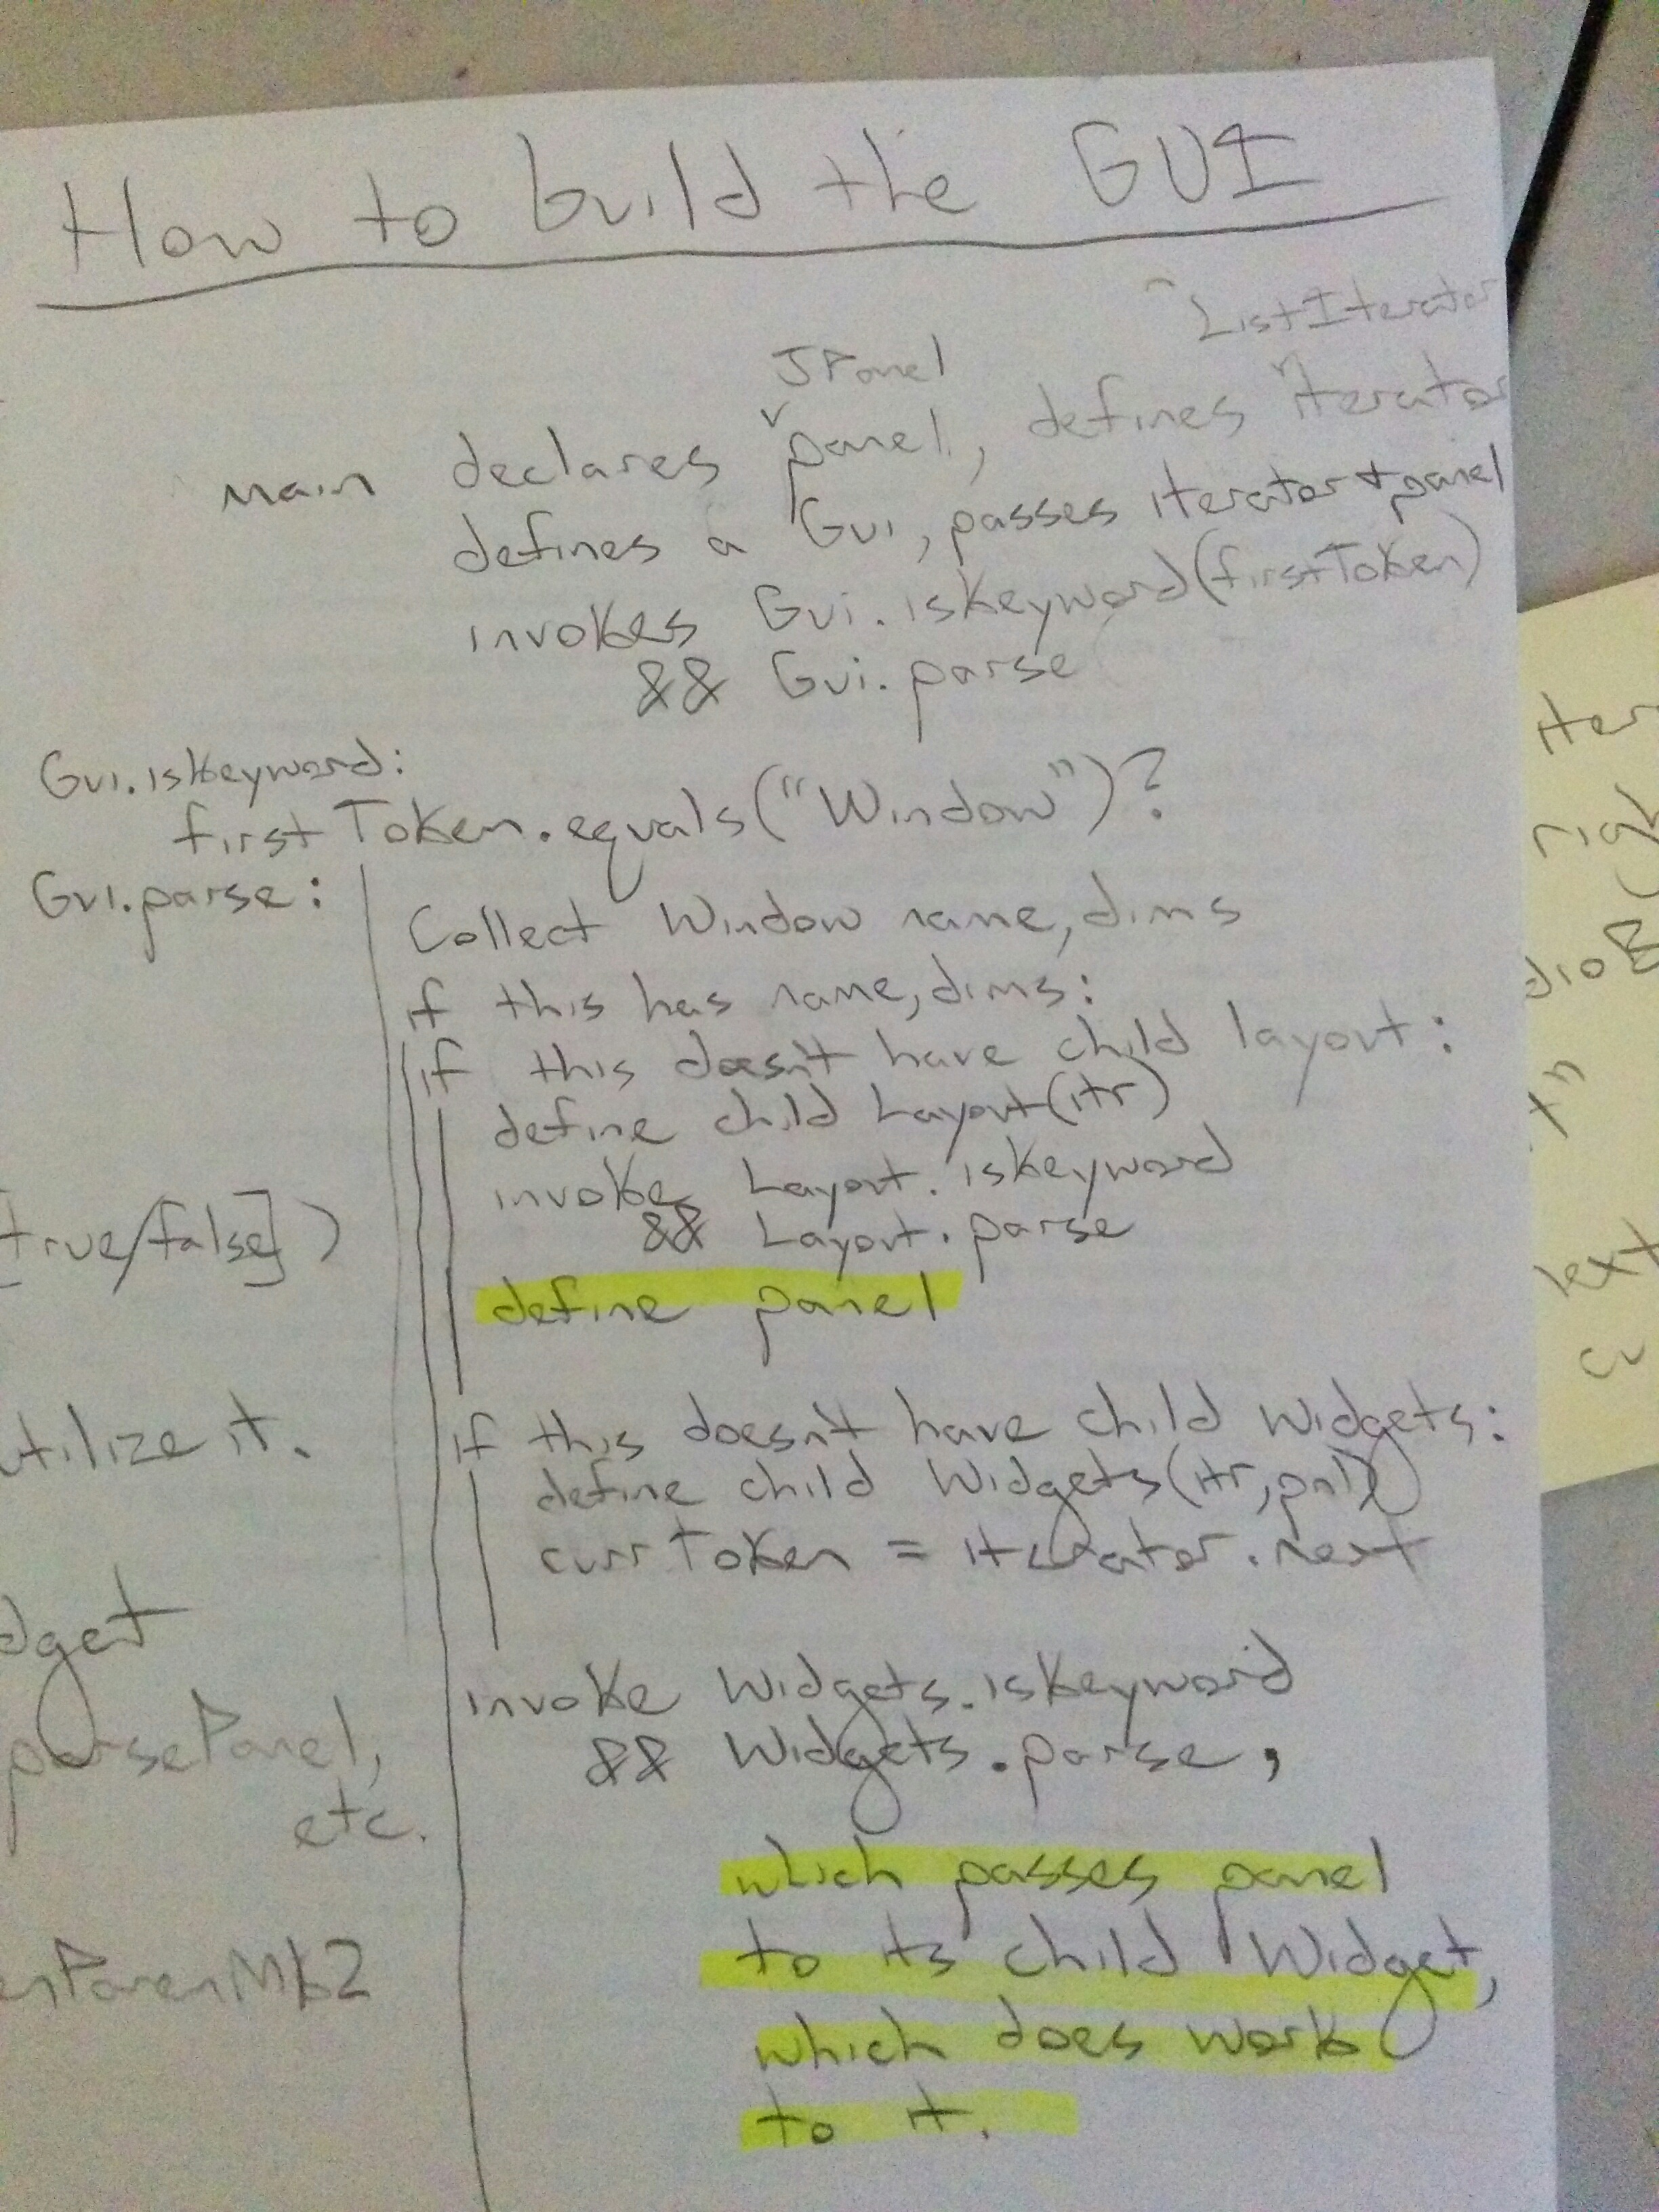 How to build the GUI
ListIterator
JPanel
main declares panel, defines iterator
defines a Gui, passes iterator + panel
invokes Gui.isKeyword(firstToken)
&& Gui.parse
Gui.isKeyword:
firstToken.equals("Window")?
Gui.parse:
Collect Window name, dims
if this has name, dims:
if this doesn't have child layout:
define child Layout(itr)
invoke Layout.isKeyword
&& Layout.parse
true/false])
define panel
if this doesn't have child widgets:
utilize it.
define child Widgets(itr, pnl)
currToken = iterator.next
dget
invoke Widgets.isKeyword
parsePanel,
&& Widgets.parse,
etc.
which passes panel
to its child Widget,
which does work
to it.
iter
righ
dioB
x"
text